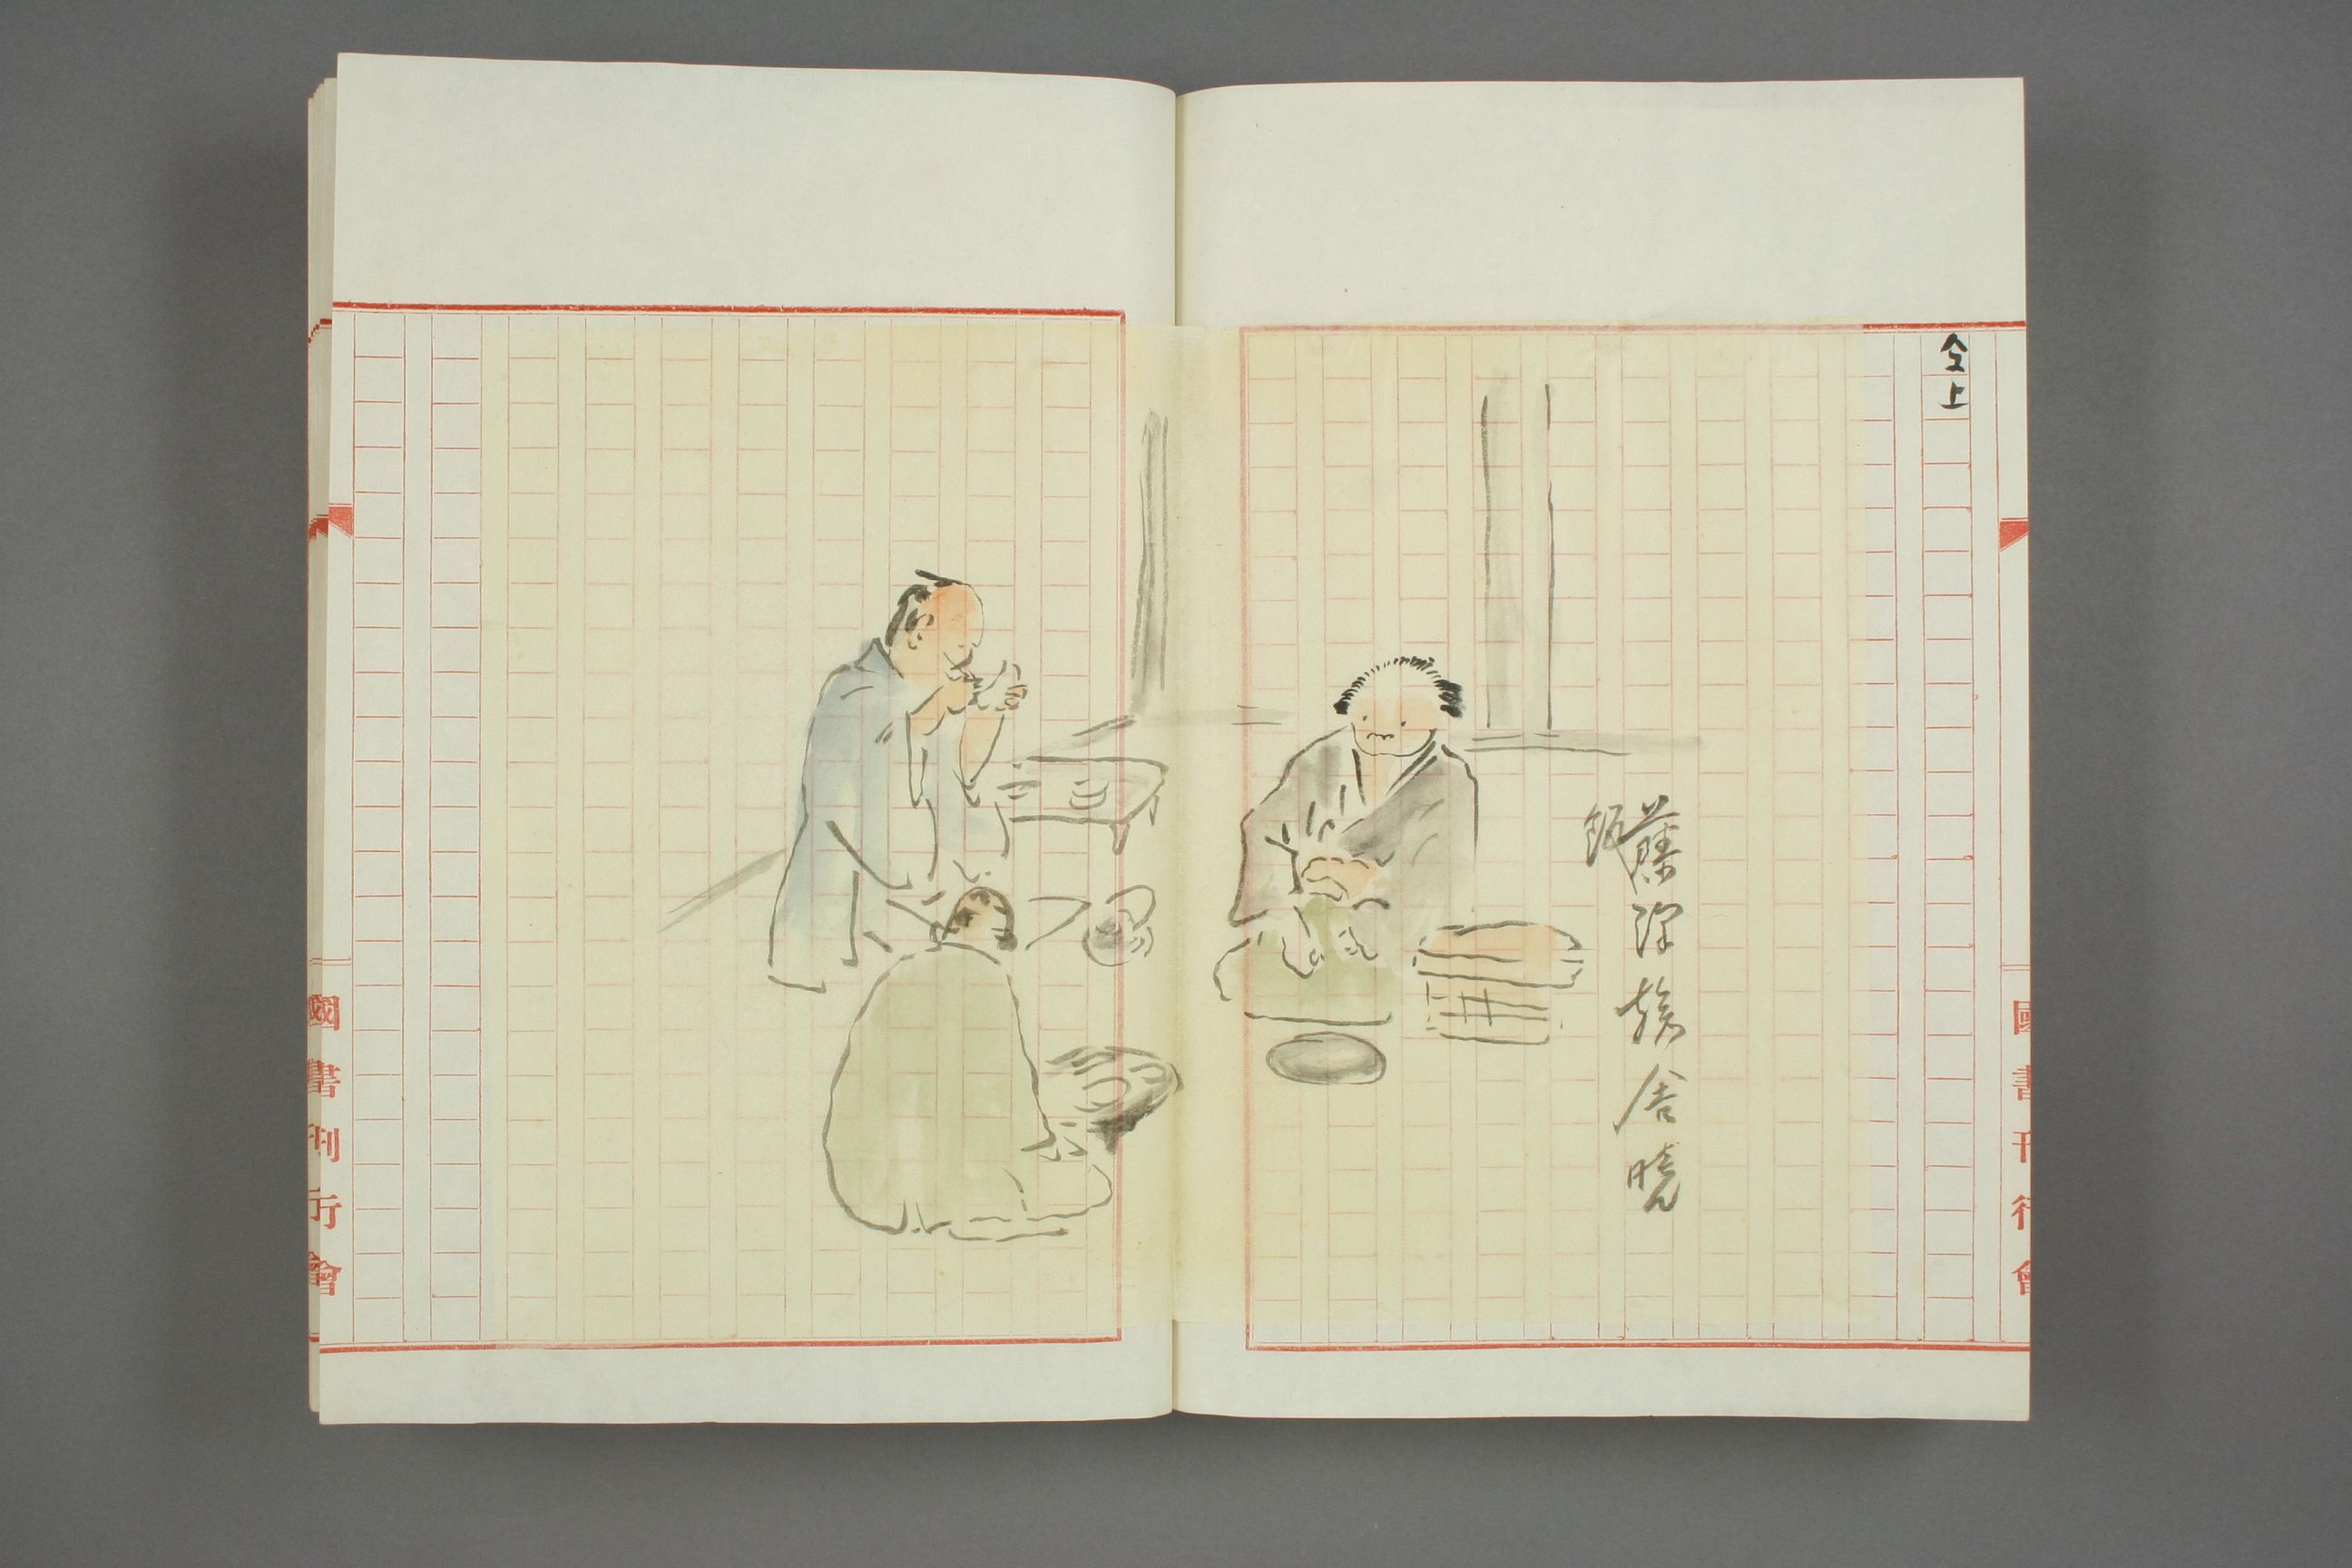 國書刊行會
仝上
藤沢旅舎曉
飯
國書刊行會